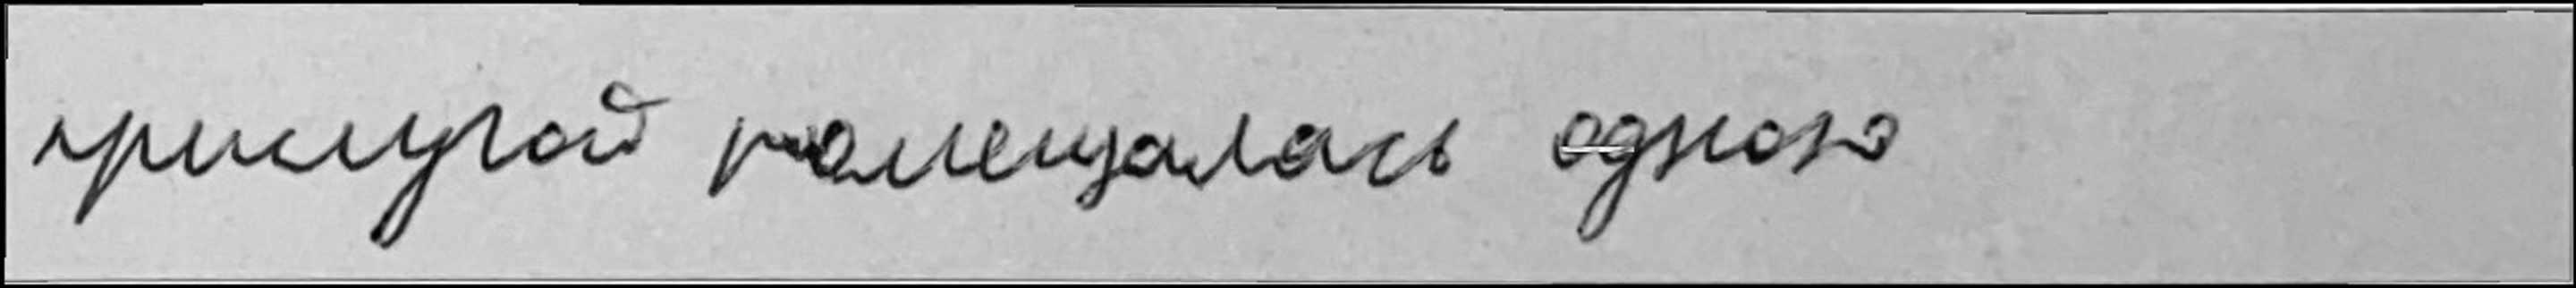 прислугой помещалась одною